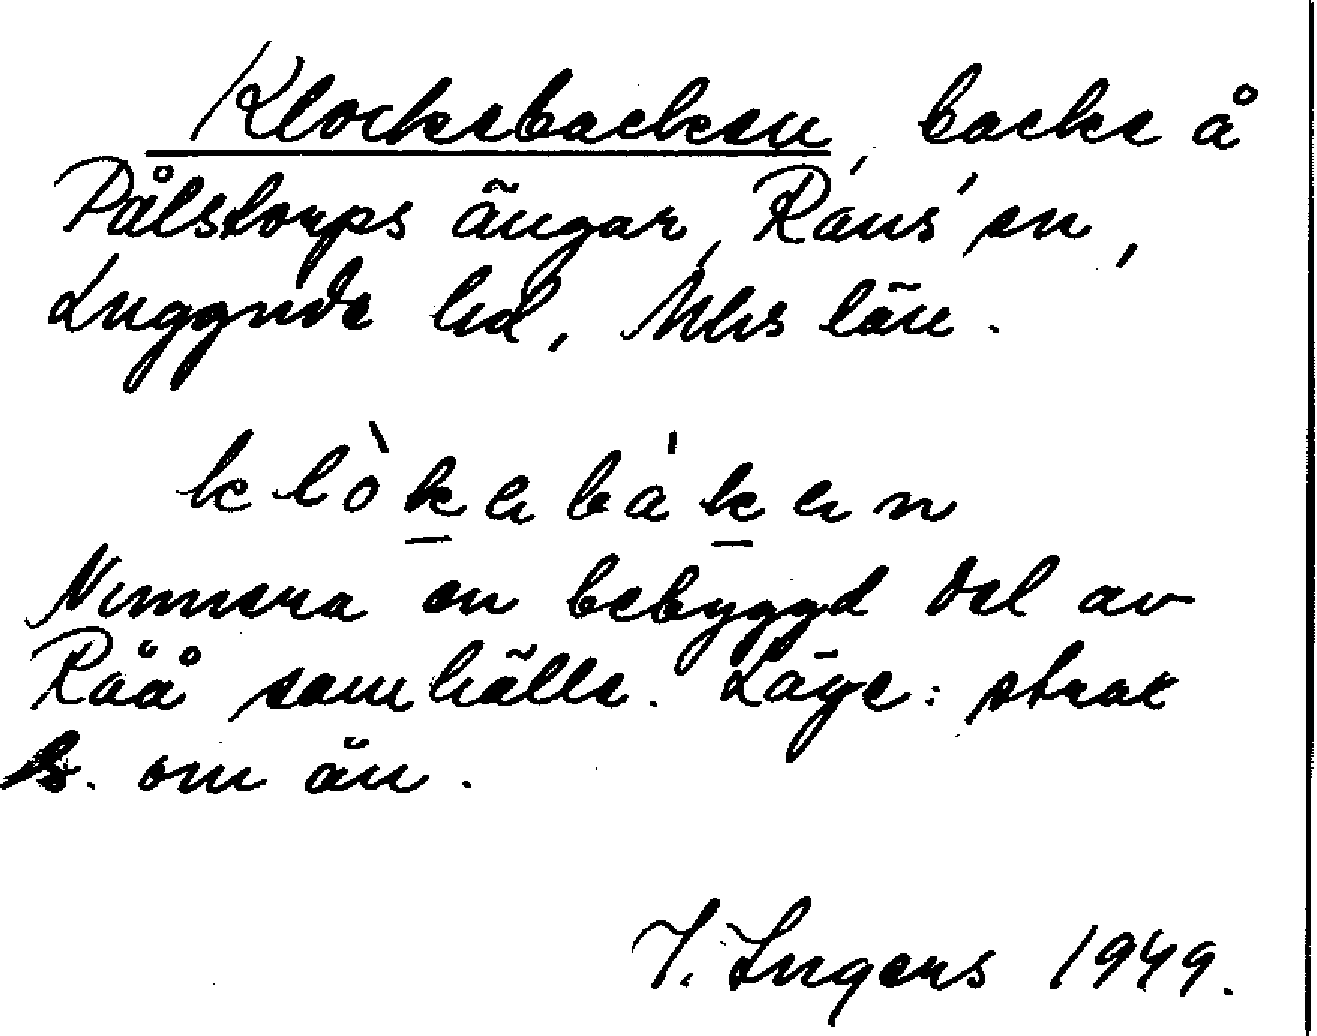 Klockebacken, backe å
Pålstorps ängar, Raus sn,
Luggude hd, Mhs län.
klòkabàkan
Numera en bebyggd del av
Råå samhälle. Läge: strax
om ån.
I. Ingers 1949.